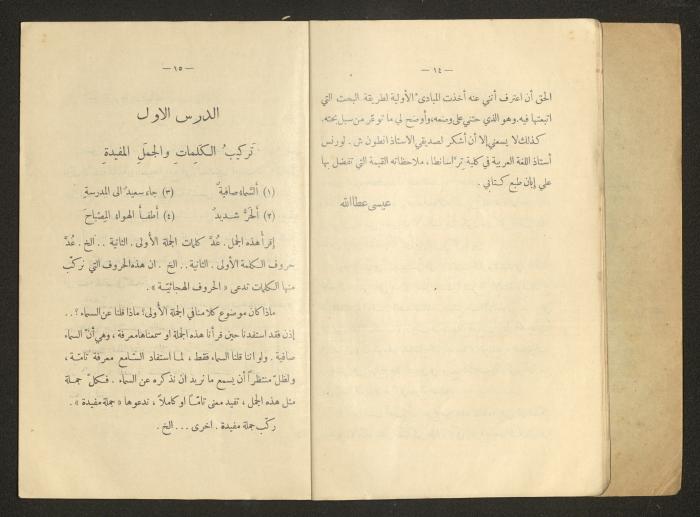 — ١٤ —
الحق أن اعترف أنني عنه أخذت المبادئ الأولية لطريقة البحث التي
اتبعتها فيه. وهو الذي حثني على وضعه، وأوضح لي ما توعّر من سبل بحثه.
كذلك لا يسعني إلا أن أشكر لصديقي الاستاذ انطون ش. لورنس
أستاذ اللغة العربية في كلية ترّاسانطا، ملاحظاته القيمة التي تفضل بها
علي إبّان طبع كتابي.
عيسى عطاالله
— ١٥ —
الدرس الاول
تركيبُ الكَلِماتِ والجملِ المفيدةِ
(١) أَلسَّماءُ صافيةٌ (٣) جاءَ سعيدٌ الى المدرسةِ
(٢) أَلحَرُّ شديدٌ (٤) أطفأَ الهواءُ المِصْباحَ
إقرأ هذه الجمل. عُدَّ كلمات الجملة الأولى. الثانية .. الخ. عُدَّ
حروف الكلمة الأولى. الثانية .. الخ. ان هذه الحروف التي نركّب
منها الكلمات تدعى « الحروف الهجائيّة ».
ماذا كان موضوع كلامنا في الجملة الأُولى؟ ماذا قلنا عن السماء؟ ..
إذن فقد استفدنا حين قرأنا هذه الجملة او سمعناها معرفة، وهي أنّ السماء
صافية. ولو اننا قلنا السماء فقط، لما استفاد السّامع معرفة تامّة،
ولظلّ منتظراً أن يسمع ما نريد ان نذكره عن السماء. فكلّ جملة
مثل هذه الجمل، تفيد معنى تامّاً او كاملاً، ندعوها « جملة مفيدة ».
ركّب جملة مفيدة. اخرى ... الخ.